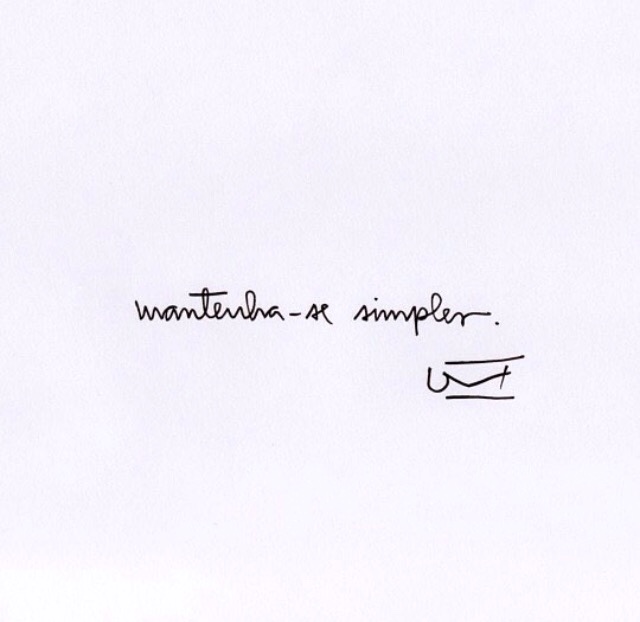 mantenha-se simples.